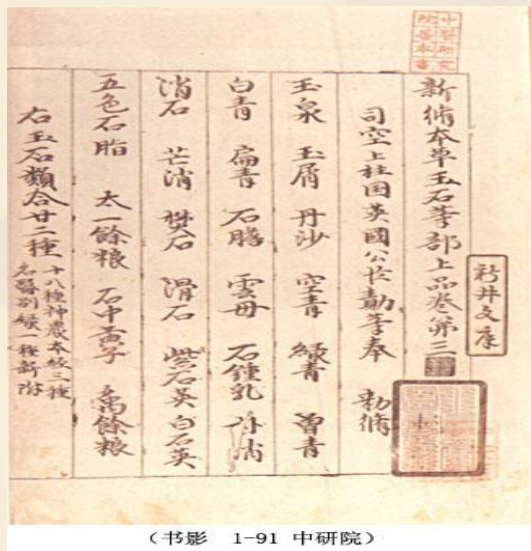 新脩本草玉石等部上品卷第三
司空上柱国英國公臣勣等奉 勑脩
玉泉 玉屑 丹沙 空青 綠青 曽青
白青 扁青 石膽 雲母 石鍾乳 朴消
消石 芒消 礬石 滑石 紫石英 白石英
五色石脂 太一餘粮 石中黃子 禹餘粮
右玉石類合廿二種 十八種神農本經三種
名醫別錄一種新附
中醫研究
院善本書
新井文庫
(书影 1-91 中研院)